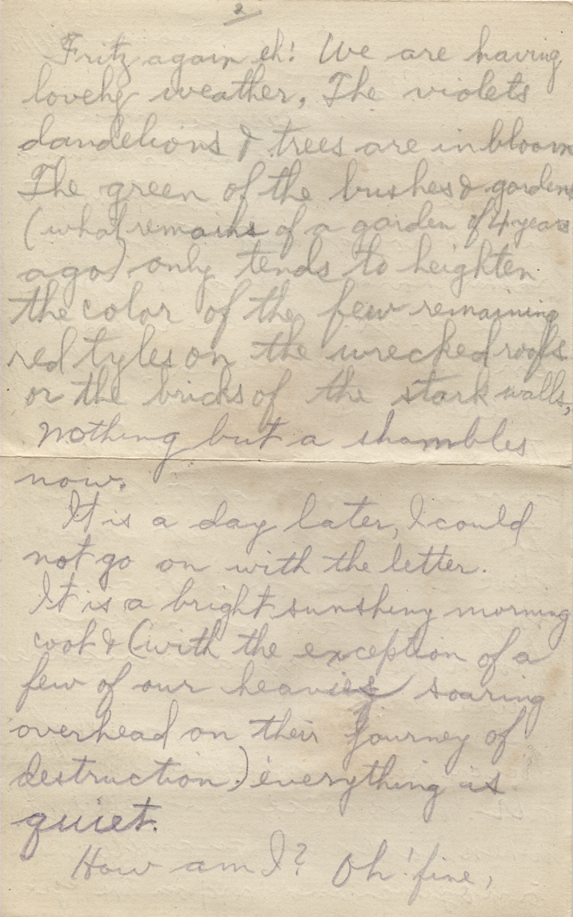 2
Fritz again eh! We are having
lovely weather, The violets
dandelions & trees are in bloom
The green of the bushes & gardens
(what remains of a garden of 4 years
ago) only tends to heighten
the color of the few remaining
red tyles on the wrecked roofs
or the bricks of the stark walls,
nothing but a shambles
now.
It is a day later, I could
not go on with the letter.
It is a bright sunshiny morning
cool & (with the exception of a
few of our heavies soaring
overhead on their journey of
destruction.) everything is
quiet.
How am I? Oh! fine,